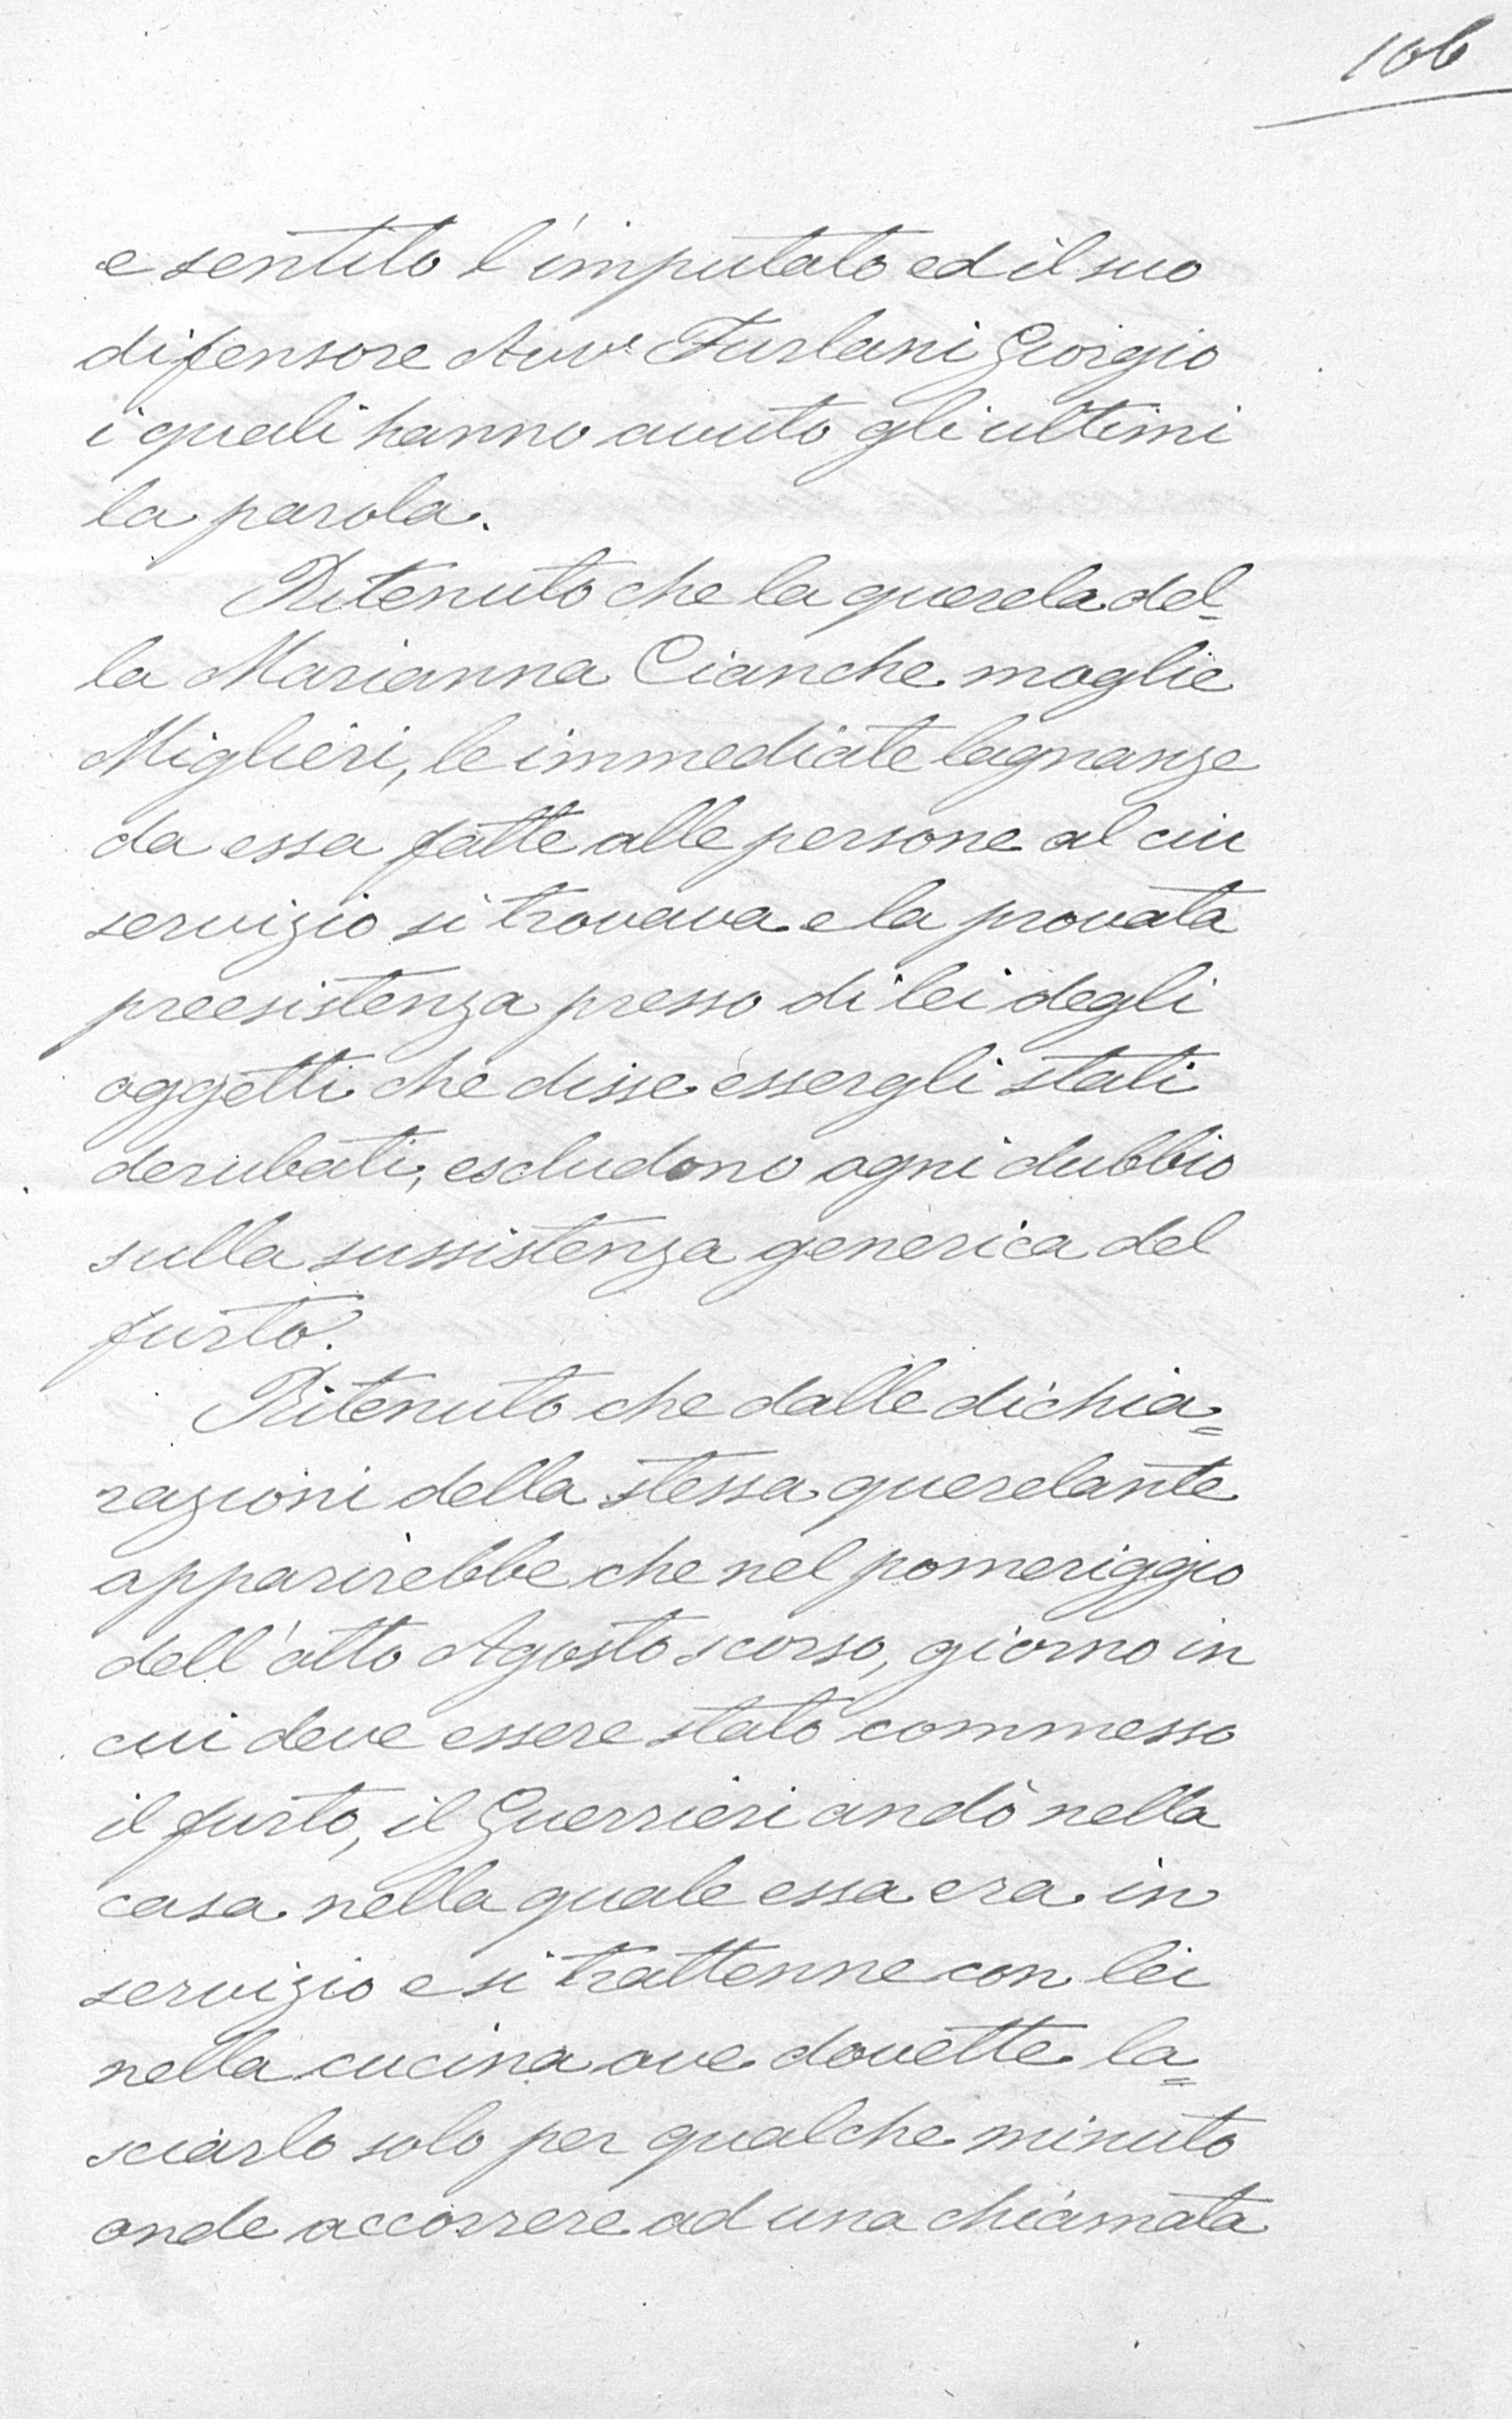 106
e sentito l'imputato ed il suo
difensore Avv.e Furlani Giorgio
i quali hanno avuto gli ultimi
la parola.
Ritenuto che la querela del=
la Marianna Cianche moglie
Miglieri, le immediate lagnanze
da essa fatte alle persone al cui
servizio si trovava e la provata
preesistenza presso di lei degli
oggetti che disse essergli stati
derubati, escludono ogni dubbio
sulla sussistenza generica del
furto.
Ritenuto che dalle dichia=
razioni della stessa querelante
apparirebbe che nel pomeriggio
dell'otto Agosto scorso, giorno in
cui deve essere stato commesso
il furto, il Guerrieri andò nella
casa nella quale essa era in
servizio e si trattenne con lei
nella cucina ove dovette la=
sciarlo solo per qualche minuto
onde accorrere ad una chiamata